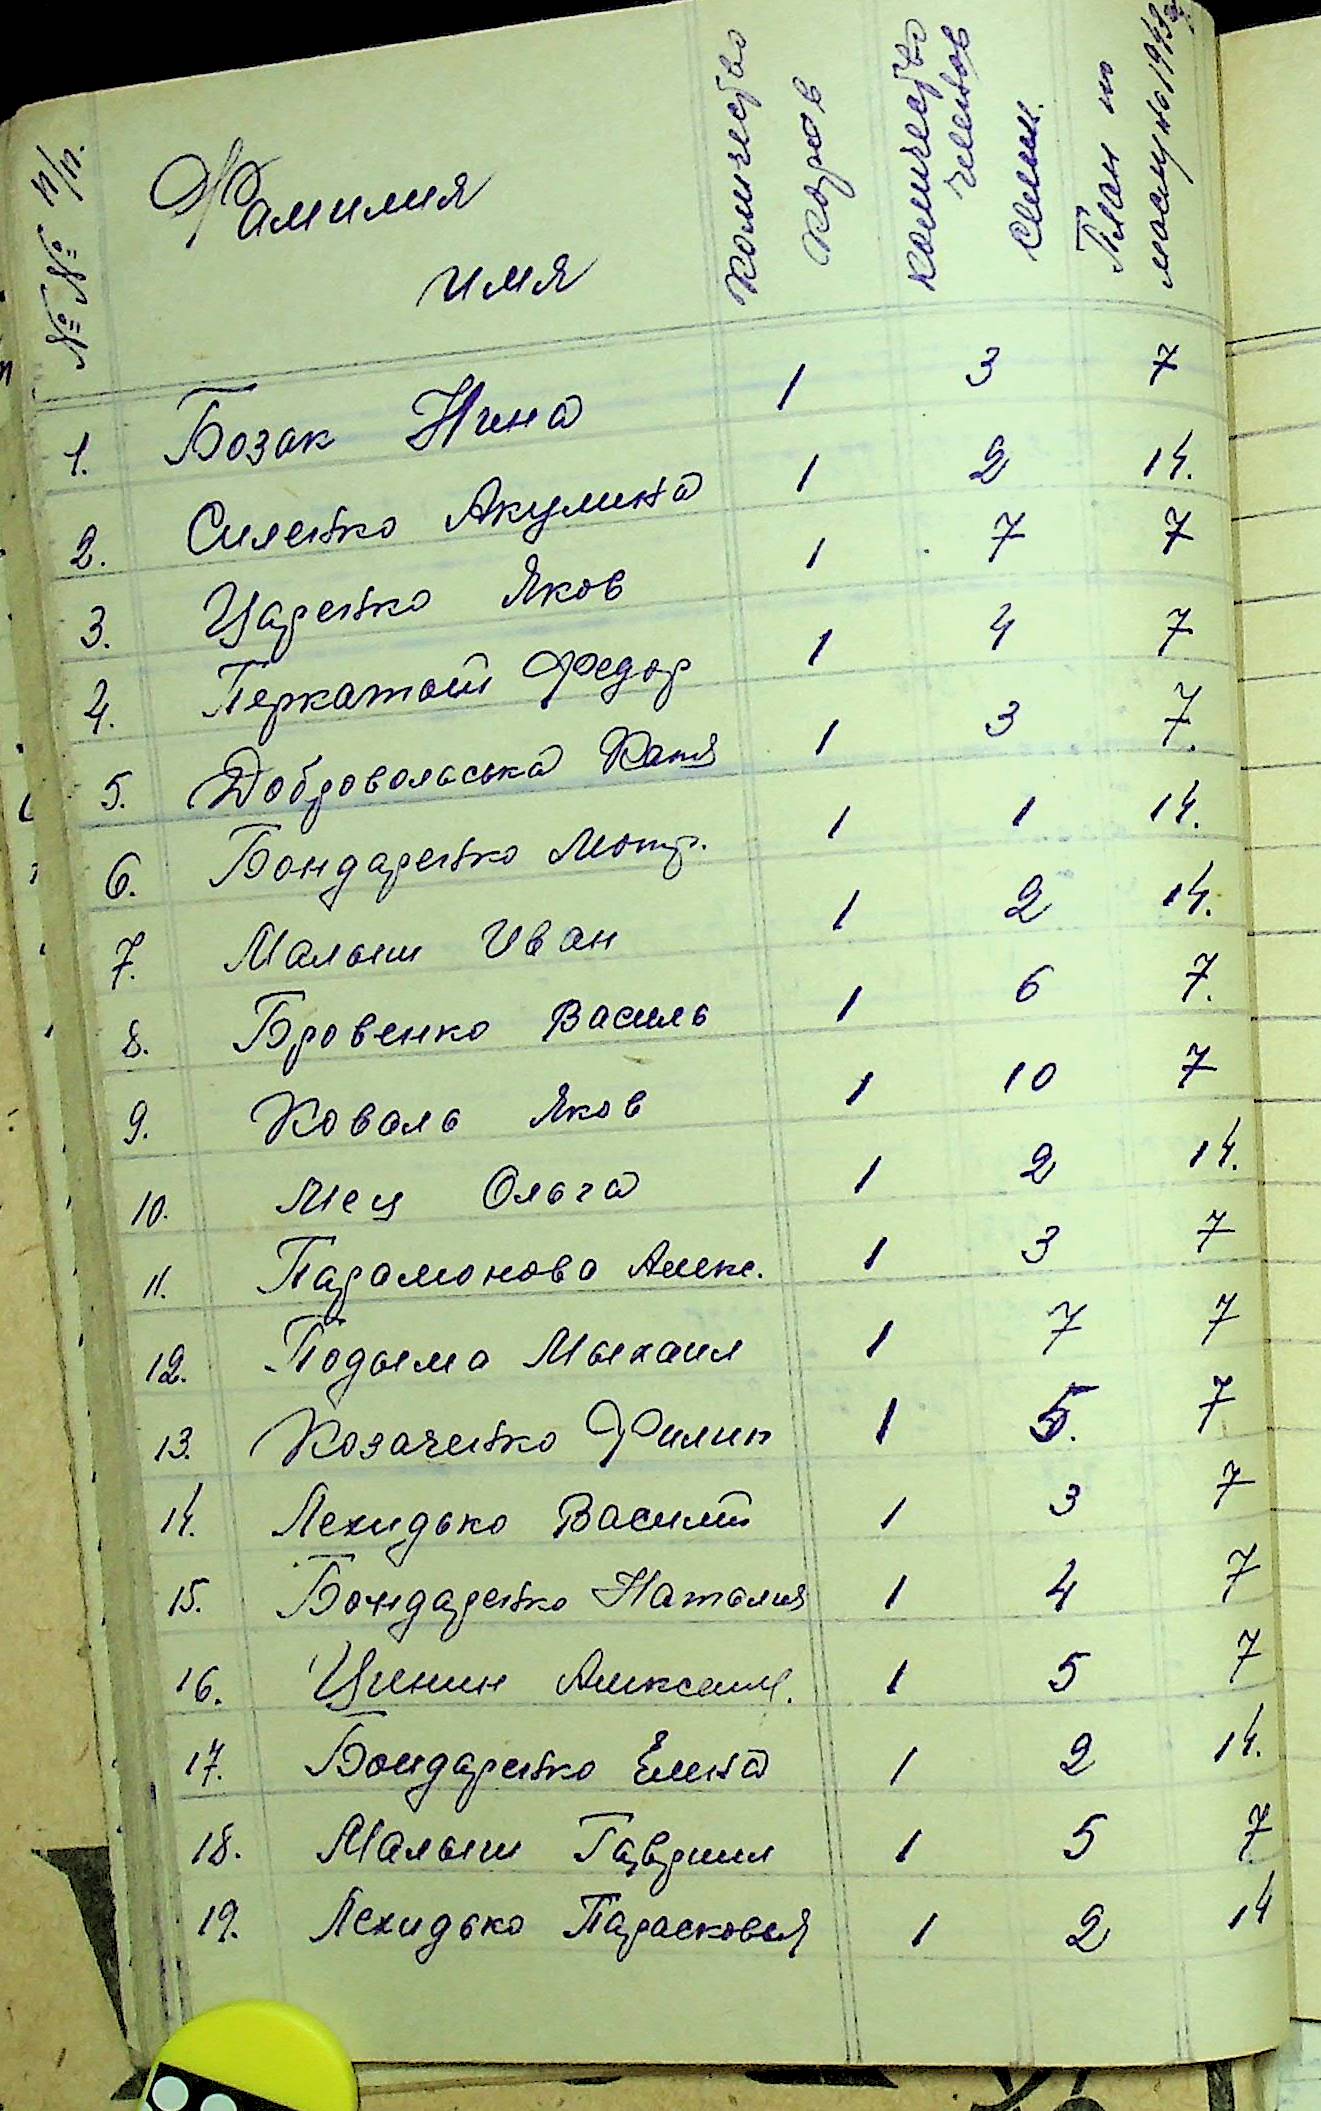 №№ п/п. Фамилия имя количество коров количество членов семьи. План по маслу на 194
1. Бозак Нина 1 3 7
2. Силенко Акулина 1 2 14.
3. Царенко Яков 1 7 7
4. Перкатый Федор 1 4 7
5. Добровольська Катя 1 3 7.
6. Бондаренко Мотр. 1 1 14.
7. Малыш Иван 1 2 14.
8. Бровенко Василь 1 6 7.
9. Коваль Яков 1 10 7
10. Мец Ольга 1 2 14.
11. Парамонова Алекс. 1 3 7
12. Подыма Мыхаил 1 7 7
13. Козаченко Филип 1 5. 7
14. Лехидько Василий 1 3 7
15. Бондаренко Наталия 1 4 7
16. Цинин 1 5 7
17. Бондаренко Елена 1 2 14.
18. Малыш Гавриил 1 5 7
19. Лехидько Парасковья 1 2 14